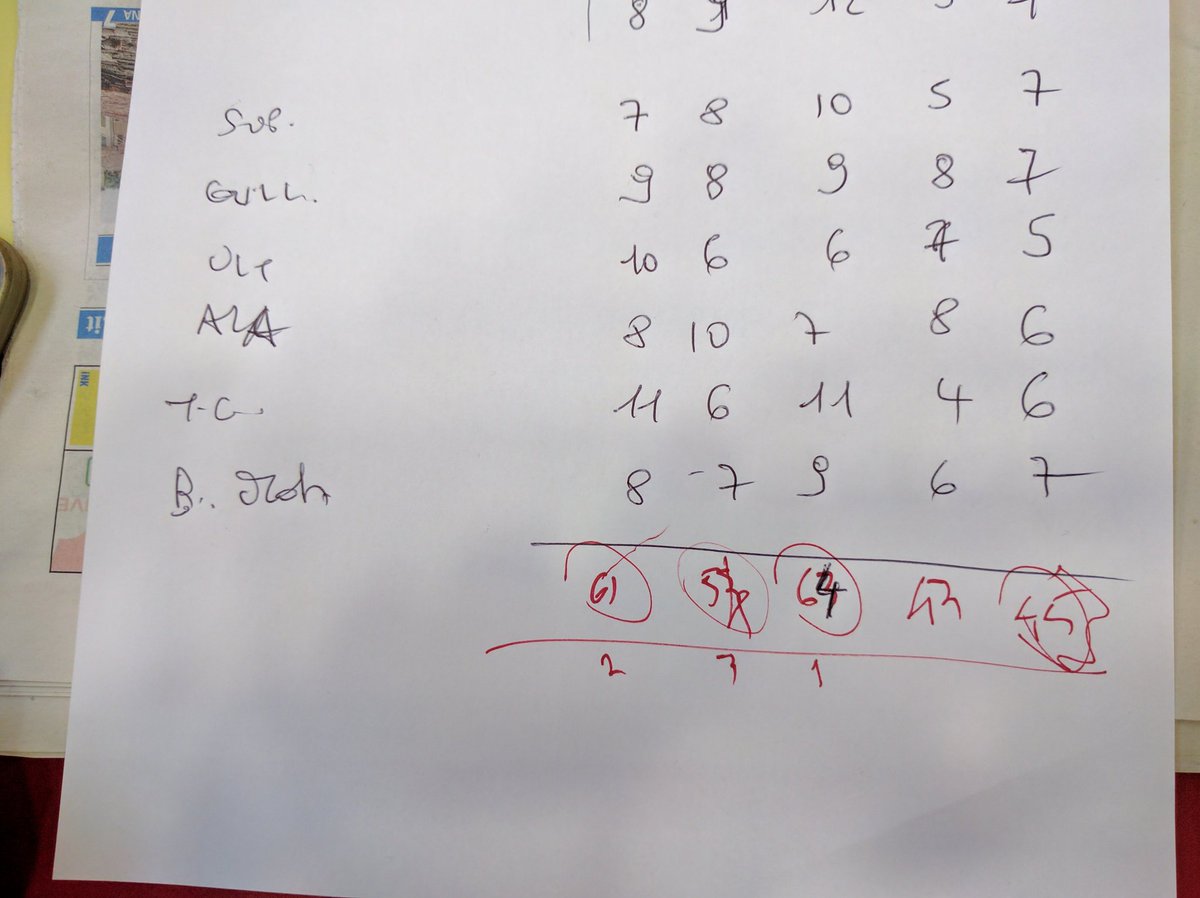 8 9 12 5 7
SVB. 7 8 10 5 7
GUILL. 9 8 9 8 7
OLI 10 6 6 7 5
ALA 8 10 7 8 6
T.G 11 6 11 4 6
B. 8 -7 9 6 7
61 54 64 43 45
2 3 1
INK